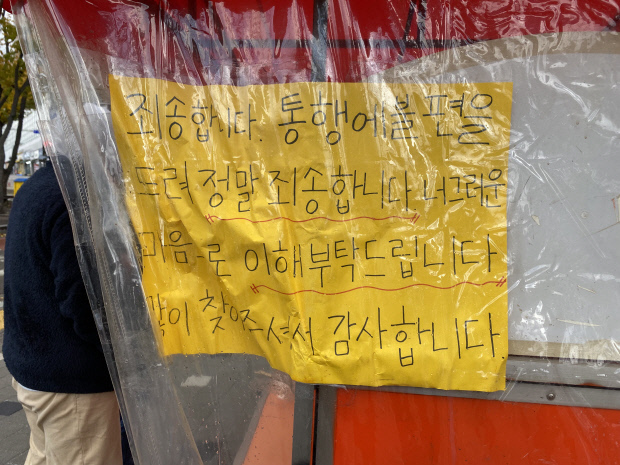 죄송합니다. 통행에불편을
드려 정말 죄송합니다. 너그러운
마음으로 이해부탁드립니다
많이 찾아주셔서 감사합니다.